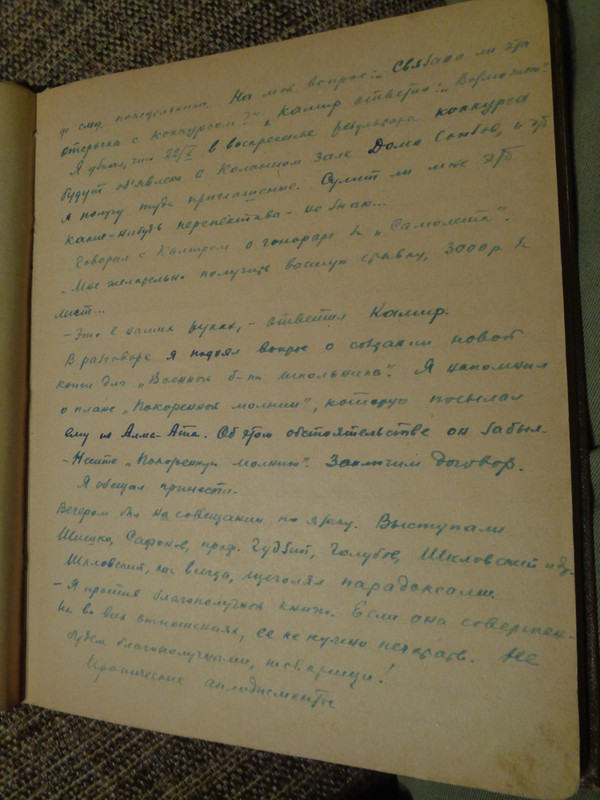 до след. понедельника. На мой вопрос: „Связана ли эта
отсрочка с конкурсом?" Камир ответил: „Возможно".
Я узнал, что 22/X в воскресенье результаты конкурса
будут объявлены в Колонном зале Дома Союзов, и что
я получу туда приглашение. Сулит ли мне это
какие-нибудь перспективы - не знаю...
Говорил с Камиром о гонораре за „Самолеты".
- Мне желательно получить высшую ставку, 3000 р. за
лист...
- Это в наших руках, - ответил Камир.
В разговоре я поднял вопрос о создании новой
книги для „Военной б-ки школьника". Я напомнил
о плане „Покоренной молнии", которую посылал
ему из Алма-Ата. Об этом обстоятельстве он забыл.
- Несите „Покоренную молнию". Заключим договор.
Я обещал принести.
Вечером был на совещании по языку. Выступали
Шишко, Сафонов, проф. Гудзий, Голубов, Шкловский и др.
Шкловский, как всегда, щеголял парадоксами.
- Я против благополучной книги. Если она совершен-
на во всех отношениях, ее не нужно печатать. Не
будем благополучными, товарищи!
Иронические аплодисменты